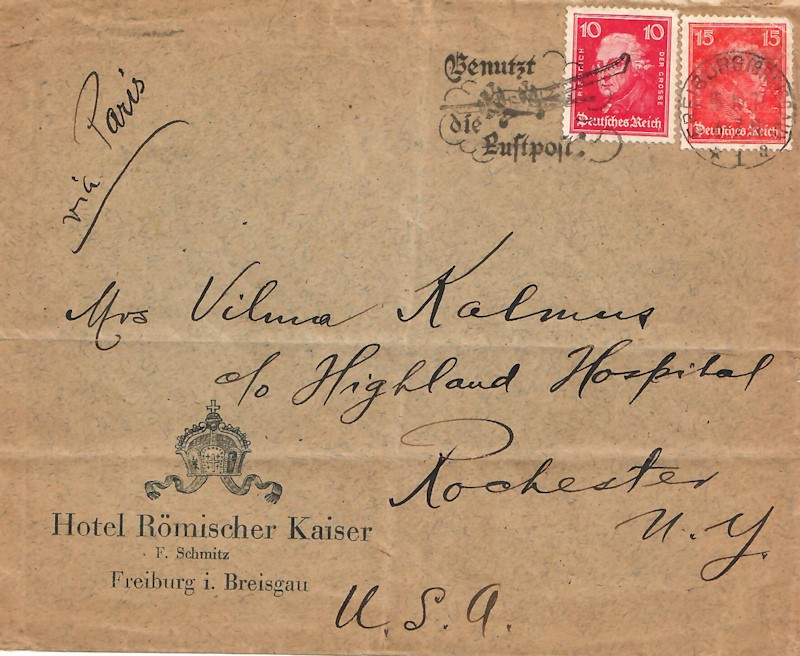 via Paris
Benutzt
die
Luftpost.
10 10
FRIEDRICH DER GROSSE
Deutsches Reich
15 15
Deutsches Reich
FREIBURG
* 1 a
Mrs Vilma Kalmus
c/o Highland Hospital
Rochester
N. Y.
U. S. A.
Hotel Römischer Kaiser
F. Schmitz
Freiburg i. Breisgau